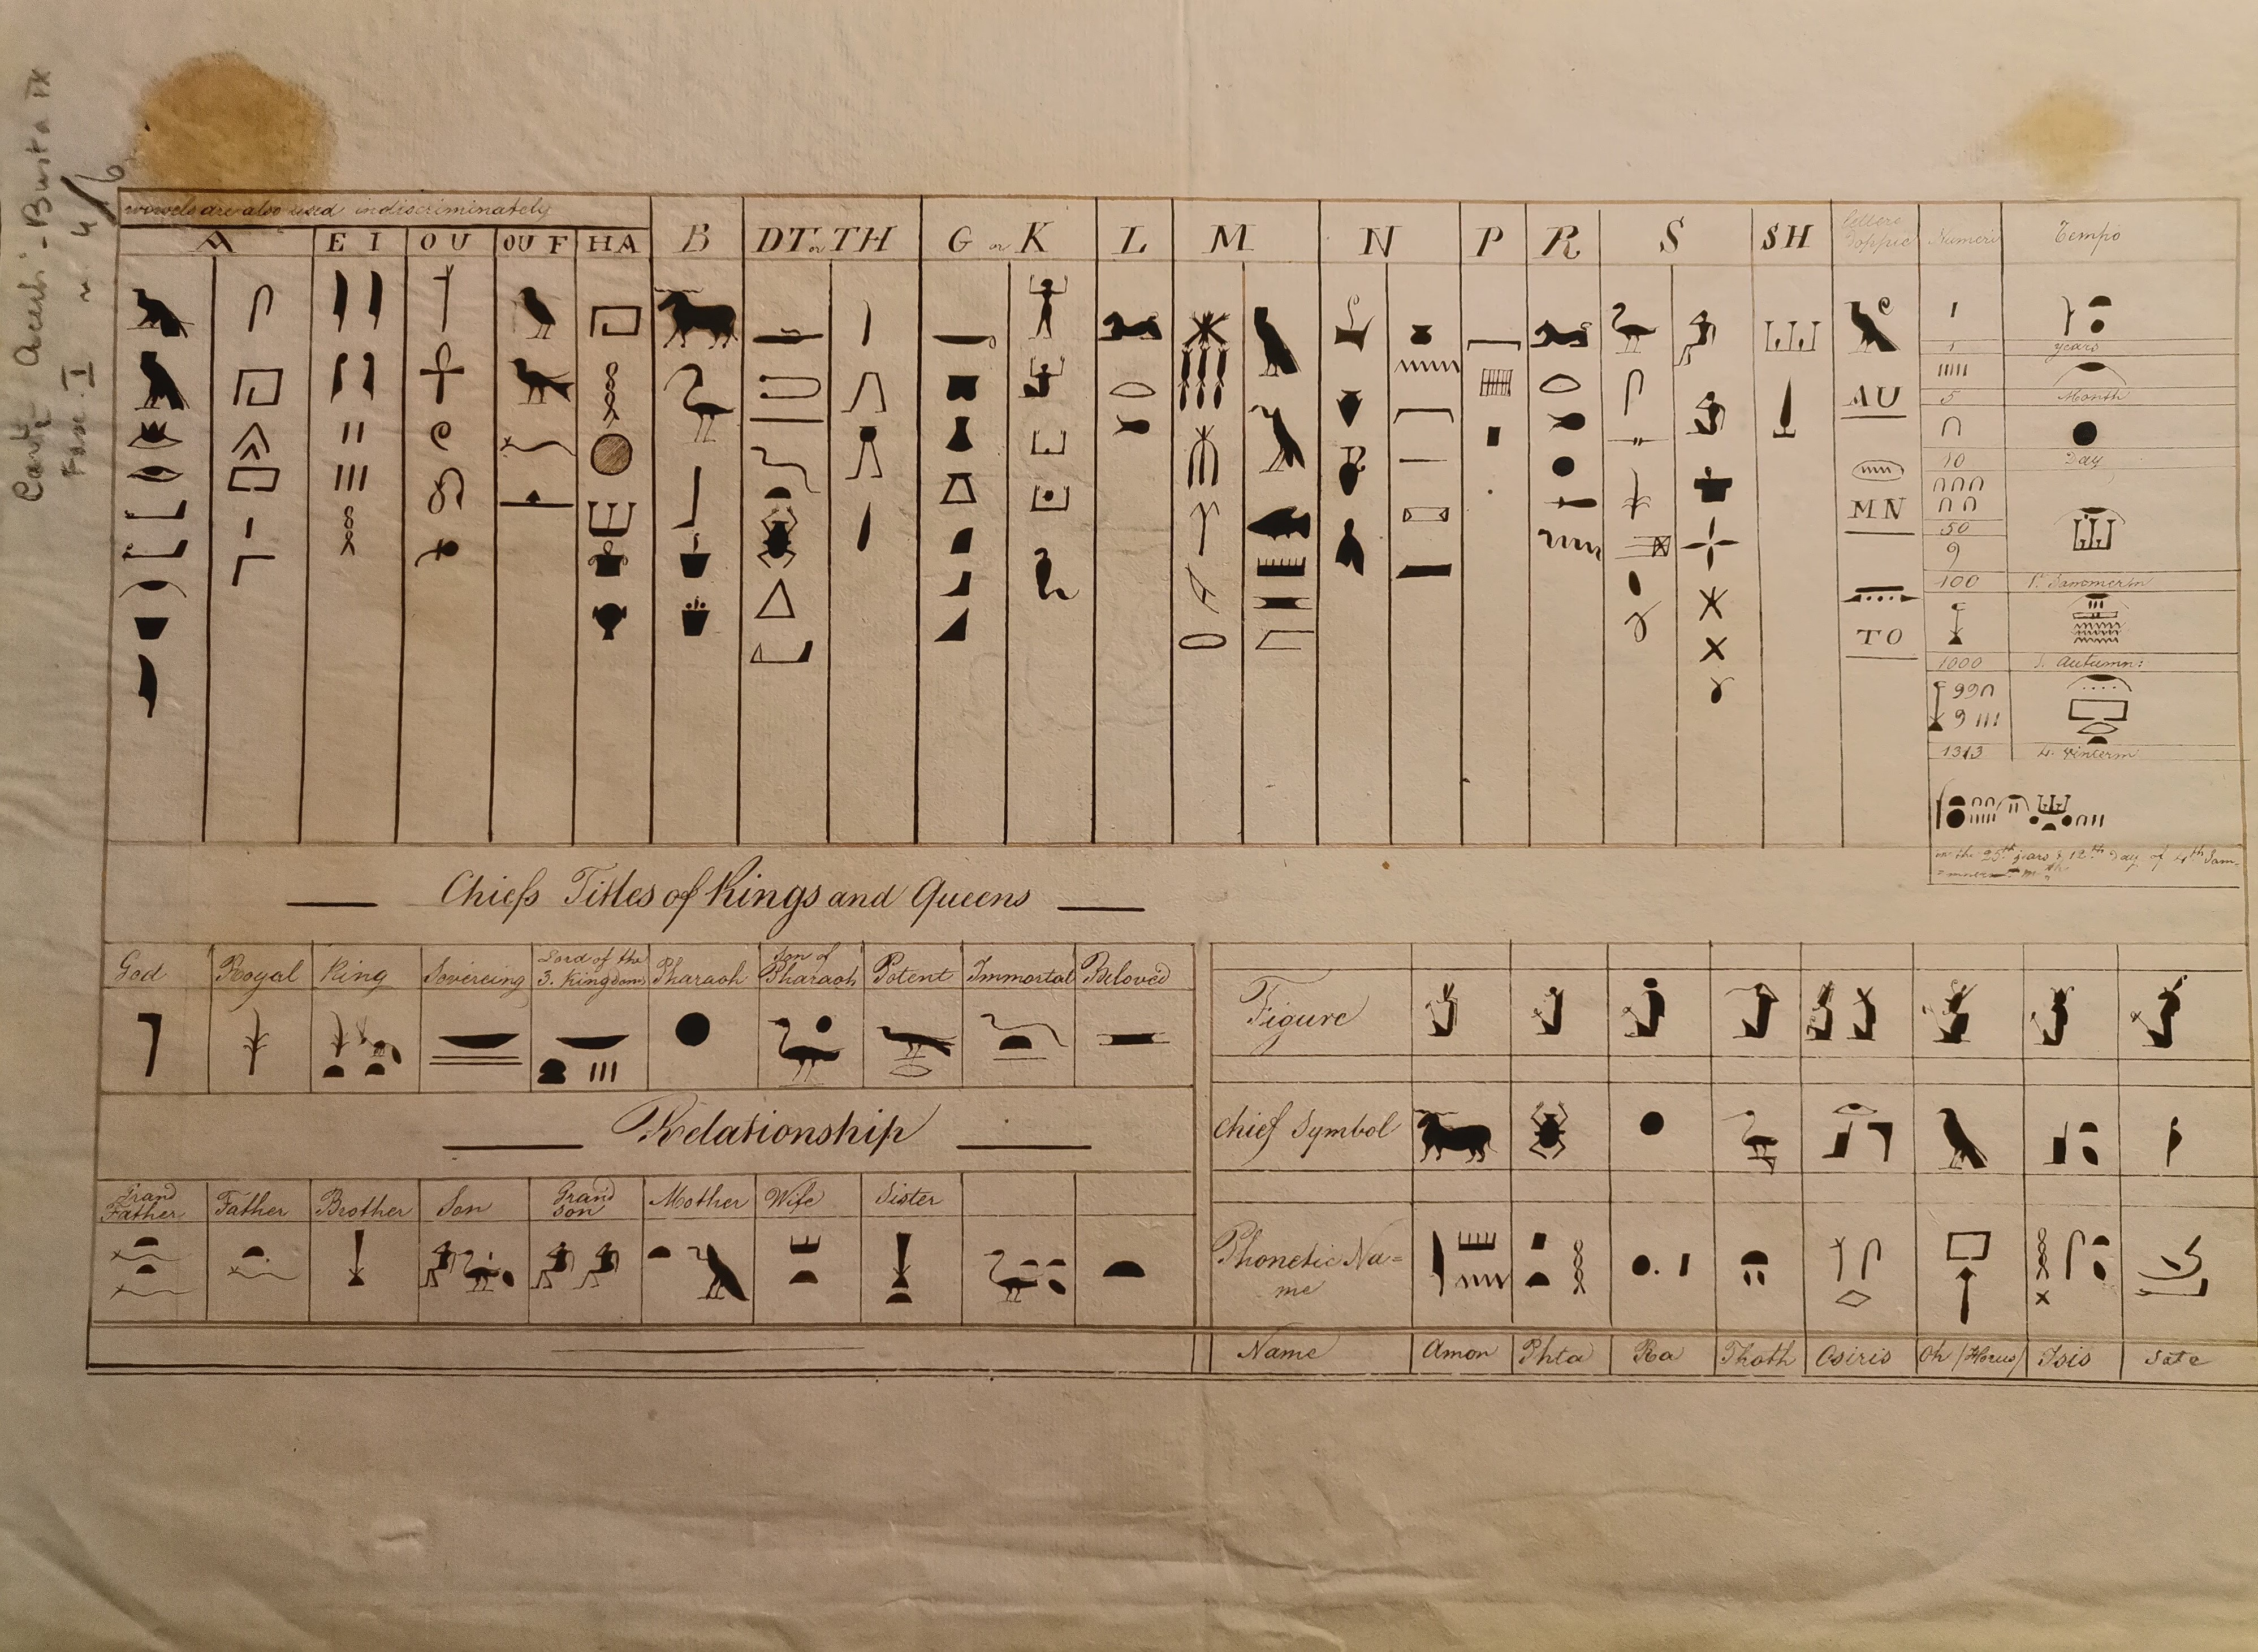 Busta IX
Fasc. I n. 4/6
vowels are also used indiscriminately
A E I O U OU F HA B DT or TH G or K L M N P R S SH Lettere Doppie Numeri Tempo
1 years
5 Month
AU
10 Day
MN
50
100
TO
1000 S. Autumn:
1313
in the 25th years & 12th Day of 4th Sam-
Chiefs Titles of Kings and Queens
God Royal King Sovereing Lord of the 3. Kingdom Pharaoh Son of Pharaoh Potent Immortal Beloved
Figure
Relationship
Chief Symbol
Grand Father Father Brother Son Grand son Mother Wife Sister
Phonetic Na=
me
Name Amon Phta Ra Thoth Osiris Oh (Horus) Isis Sate